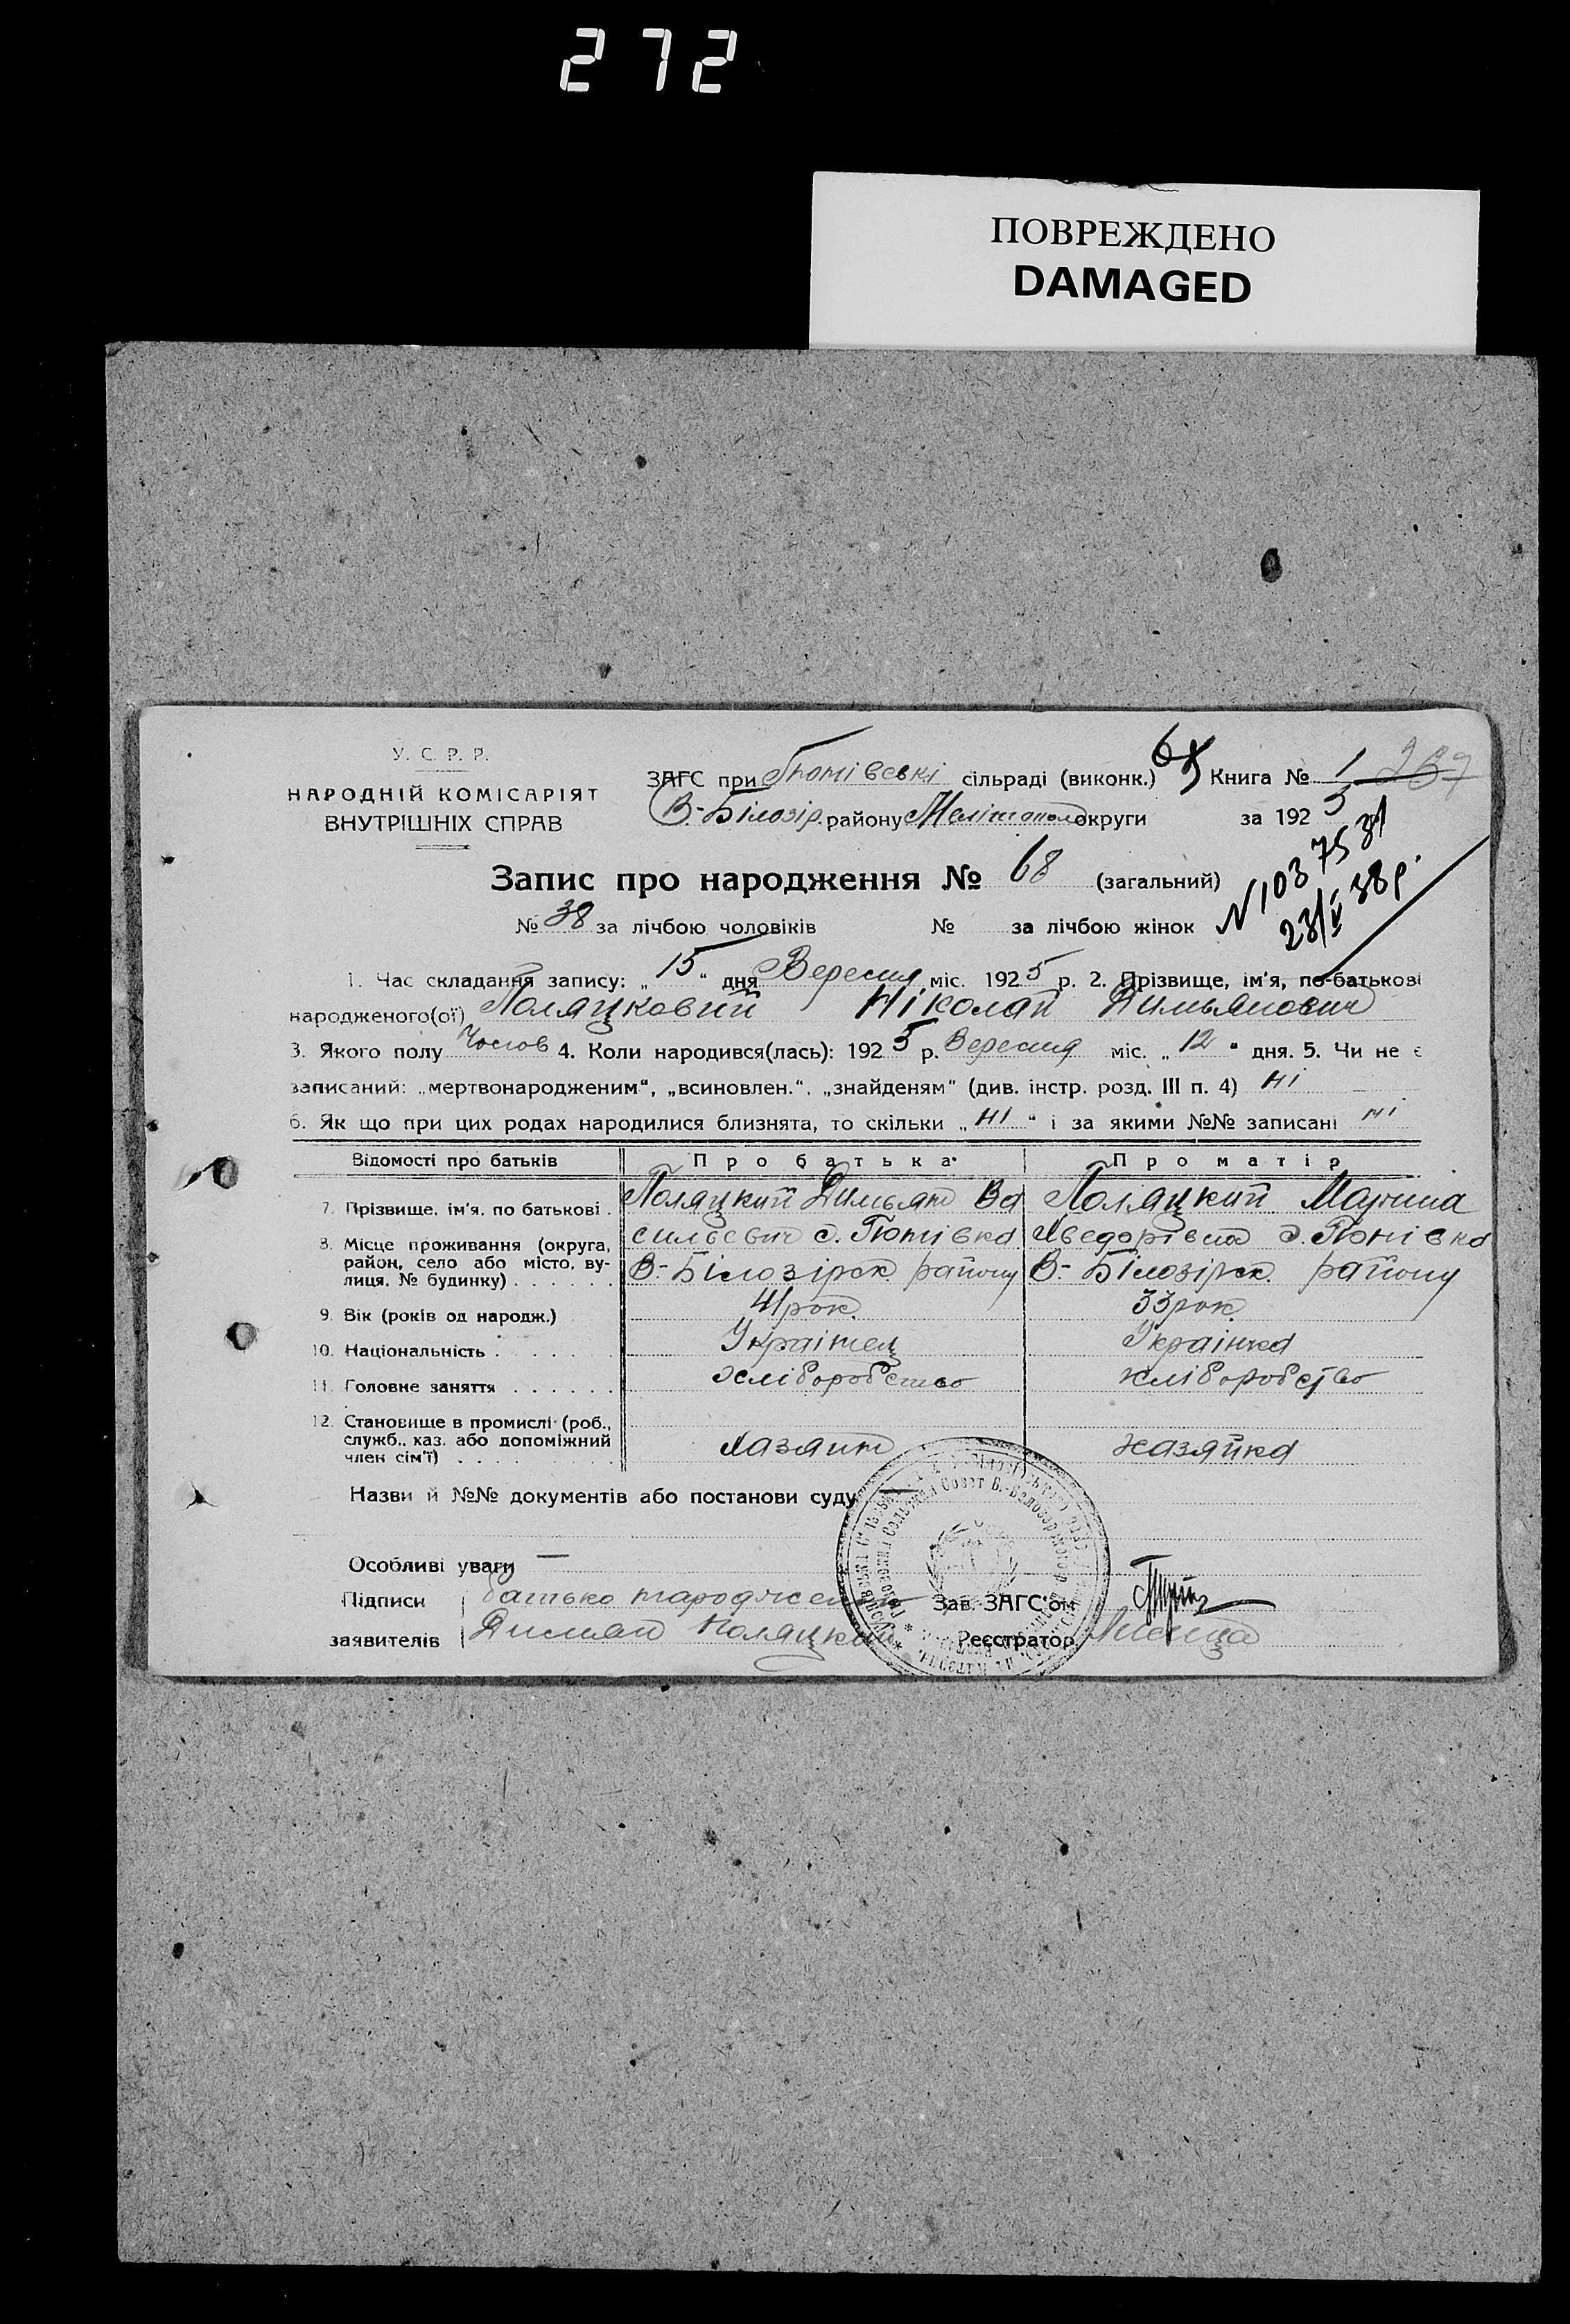 272
ПОВРЕЖДЕНО
DAMAGED
У. С. Р. Р.
НАРОДНІЙ КОМІСАРІЯТ
ВНУТРІШНІХ СПРАВ
ЗАГС при сільраді (виконк.) Книга № 1 267
В.-Білозір. району Мелітопол округи за 1925
N 1037531
23/V 38р.
Запис про народження № 68 (загальний)
№ 38 за лічбою чоловіків № за лічбою жінок
1. Час складання запису: „15" дня Вересня міс. 1925 р. 2. Прізвище, ім'я, по-батькові
народженого(ої) Поляцковий Ніколай Димьянович
3. Якого полу Чолов 4. Коли народився(лась): 1925 р. Вересня міс. „12" дня. 5. Чи не є
записаний: „мертвонародженим", „всиновлен.", „знайденям" (див. інстр. розд. III п. 4) ні
6. Як що при цих родах народилися близнята, то скільки „ні" і за якими №№ записані ні
Відомості про батьків Про батька Про матір
7. Прізвище, ім'я, по батькові . Поляцкий Димьян Ва Поляцкий Марина
8. Місце проживання (округа, сильевич с. Хведорівна с.
район, село або місто, ву- В.-Білозірск. району В.-Білозірск. району
лиця, № будинку) . . . . . .
9. Вік (років од народж.) 41 рок. 33 рок
10. Національність . . . . . . Українец Українка
11. Головне заняття . . . . . . хліборобство хліборобство
12. Становище в промислі (роб.,
служб., каз. або допоміжний хазяин хазяйка
член сім'ї) . . . . . . . .
Назви й №№ документів або постанови суду —
Особливі уваги —
Підписи батько народжен Зав. ЗАГС'ом
заявителів Димян Поляцкий Реєстратор